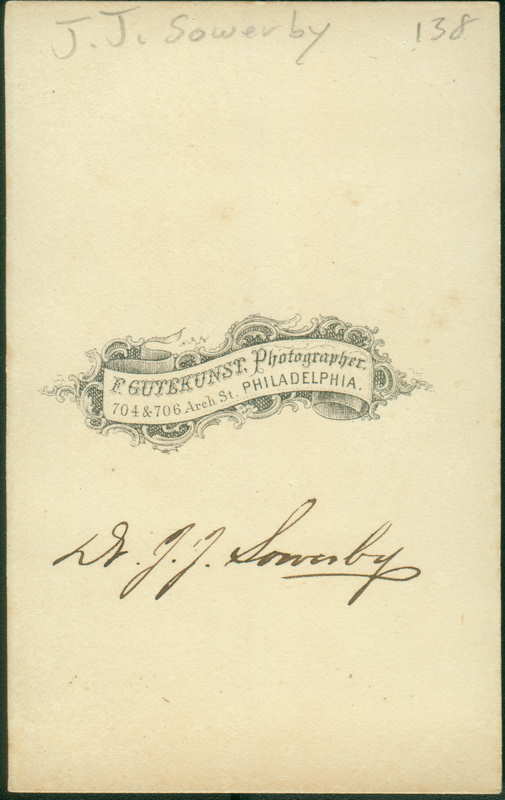 J. J. Sowerby 138
F. GUTEKUNST, Photographer.
704 & 706 Arch St. PHILADELPHIA.
Dr. J. J. Sowerby